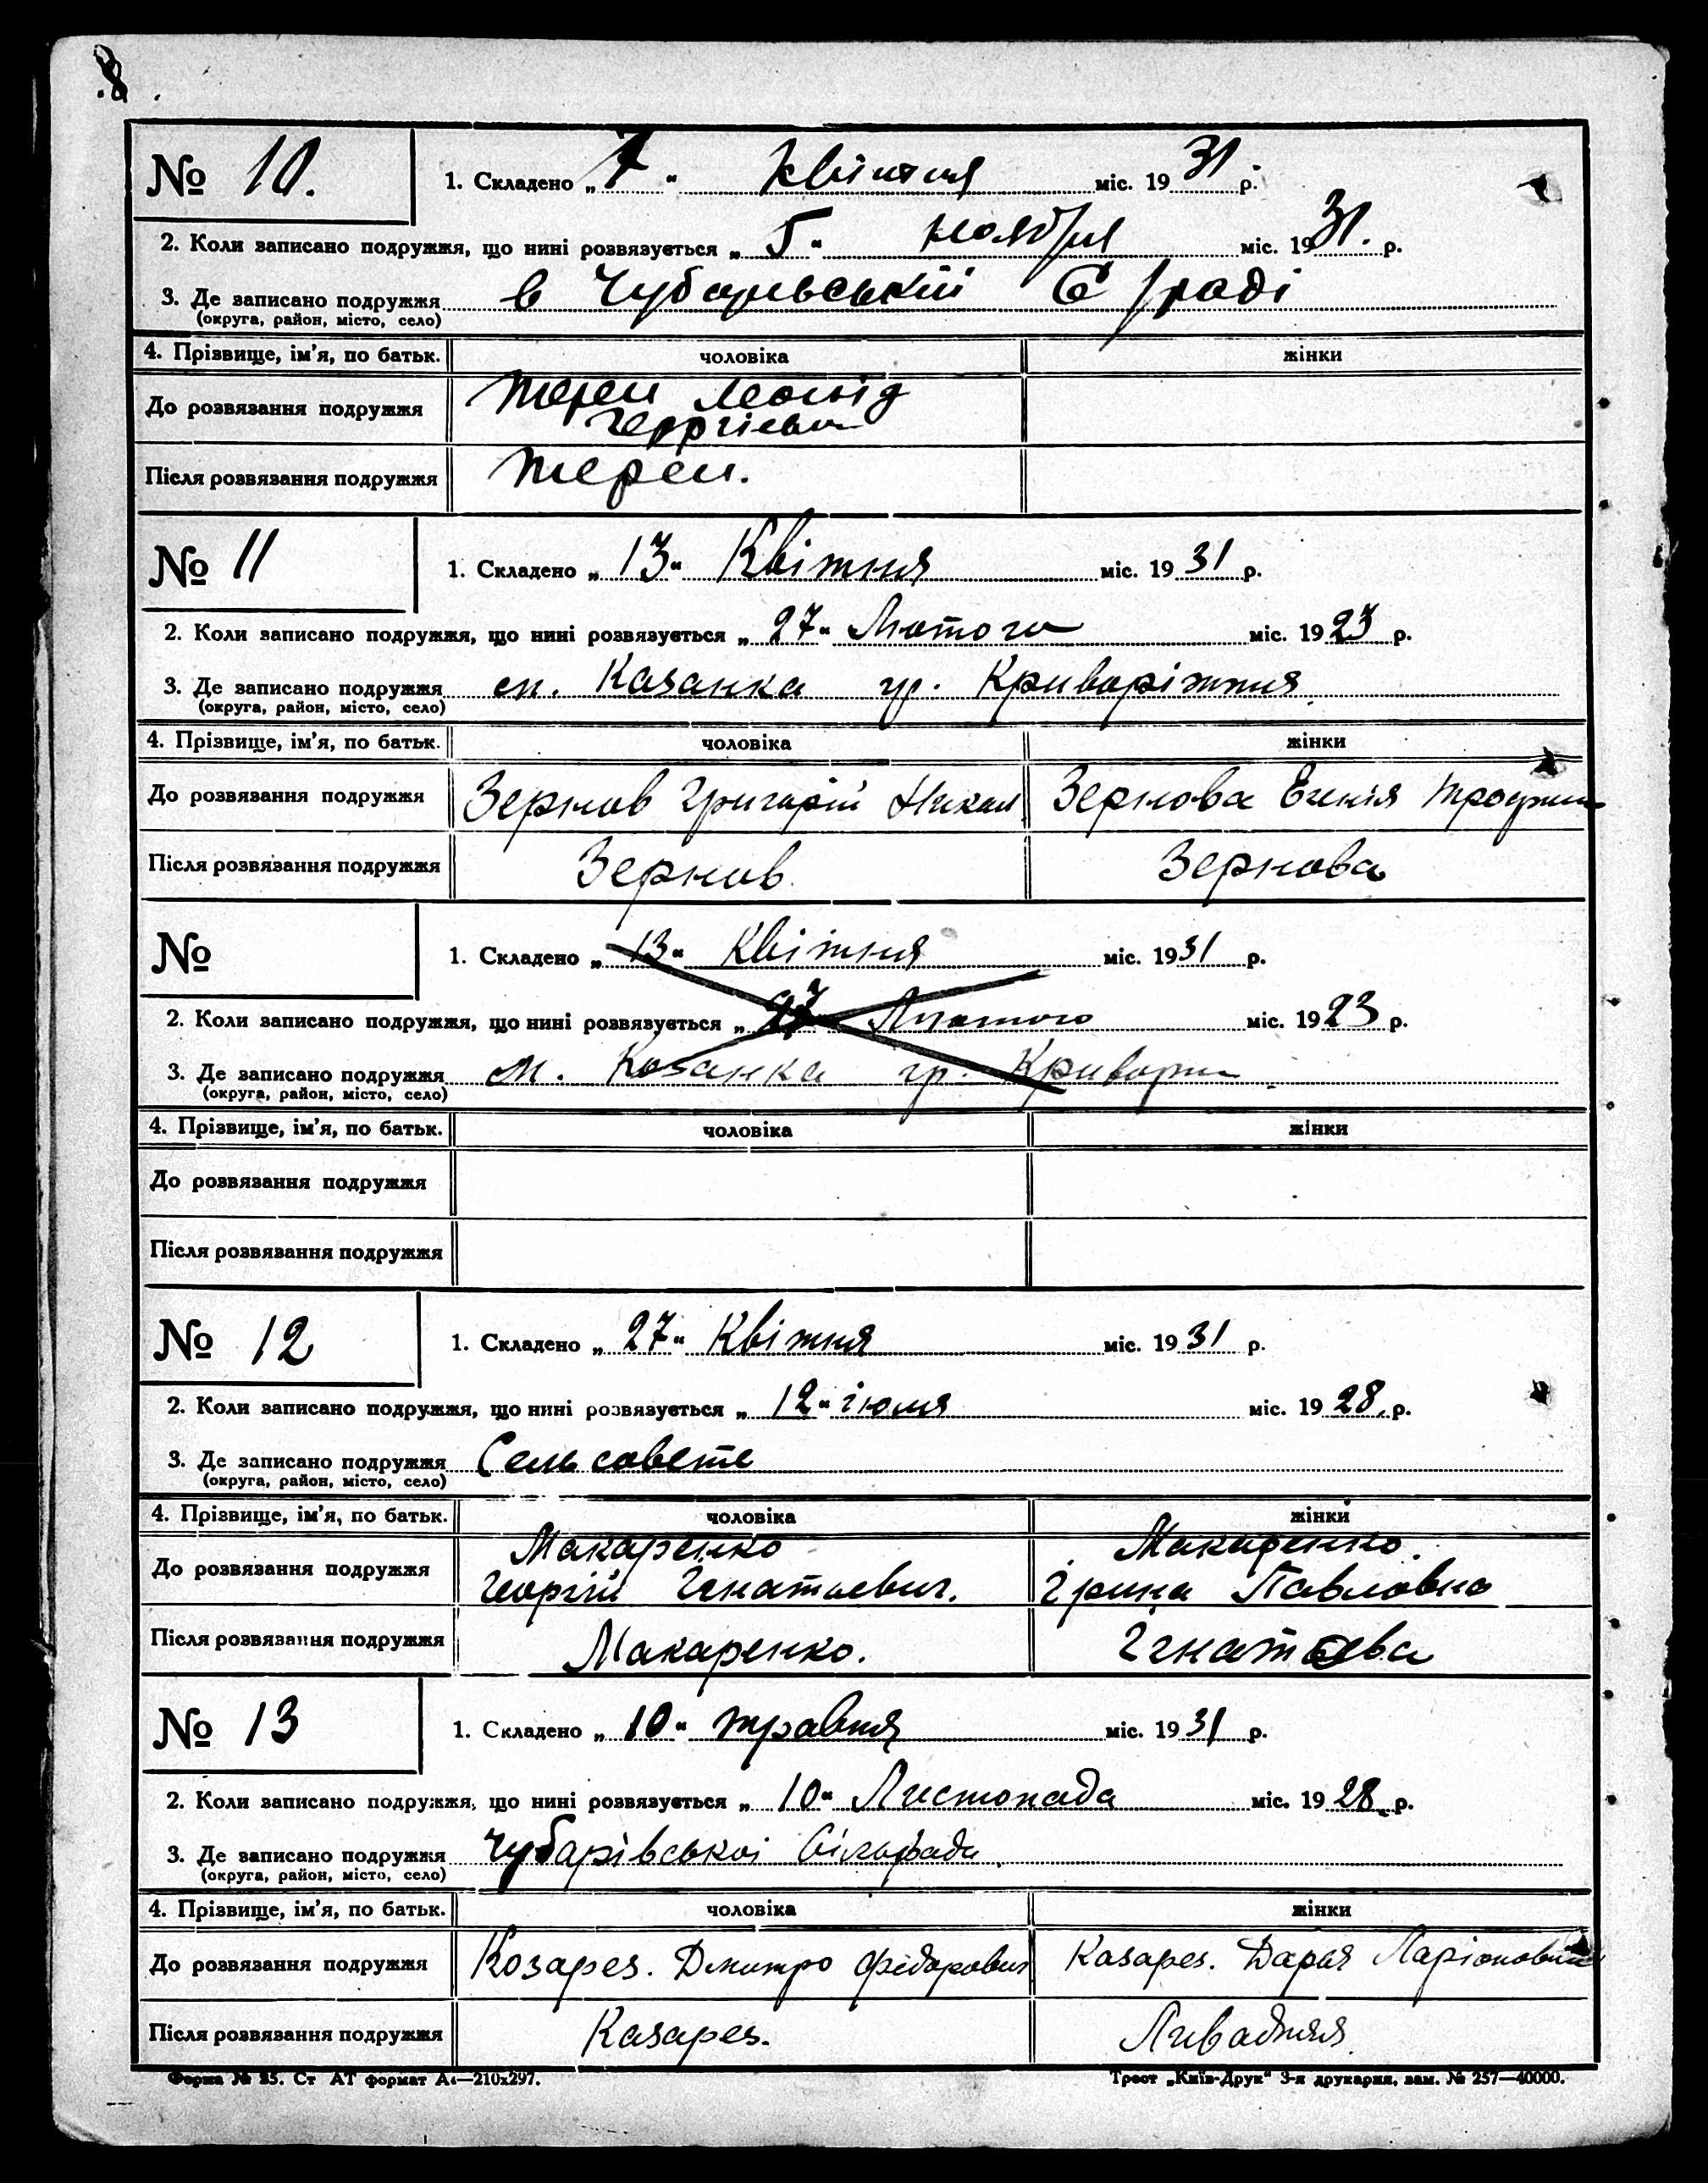 8.
№ 10. 1. Складено „ 7 " квітня міс. 1931 р.
2. Коли записано подружжя, що нині розвязується „ 5 " ноября міс. 1931. р.
3. Де записано подружжя в Чубарьвській С/раді
(округа, район, місто, село)
4. Прізвище, ім'я, по батьк. чоловіка жінки
До розвязання подружжя Терен Леонід
Георгієвич
Після розвязання подружжя Терен.
№ 11 1. Складено „ 13 " Квітня міс. 1931 р.
2. Коли записано подружжя, що нині розвязується „ 27 " Лютого міс. 1923 р.
3. Де записано подружжя ст. Казанка гр. Криворіжжя
(округа, район, місто, село)
4. Прізвище, ім'я, по батьк. чоловіка жінки
До розвязання подружжя Зернов Григорій Никол Зернова Евгенія
Після розвязання подружжя Зернов Зернова
№ 1. Складено „ 13 " Квітня міс. 1931 р.
2. Коли записано подружжя, що нині розвязується „ 27 " Лютого міс. 1923 р.
3. Де записано подружжя Козанка гр.
(округа, район, місто, село)
4. Прізвище, ім'я, по батьк. чоловіка жінки
До розвязання подружжя
Після розвязання подружжя
№ 12 1. Складено „ 27 " Квітня міс. 1931 р.
2. Коли записано подружжя, що нині розвязується „ 12 " іюля міс. 1928. р.
3. Де записано подружжя Сельсовете
(округа, район, місто, село)
4. Прізвище, ім'я, по батьк. чоловіка жінки
До розвязання подружжя Макаренко Макаренко.
Георгій Ігнатьевич. Ірина Павловна
Після розвязання подружжя Макаренко. Ігнатьева
№ 13 1. Складено „ 10 " травня міс. 1931 р.
2. Коли записано подружжя, що нині розвязується „ 10 " Листопада міс. 1928 р.
3. Де записано подружжя Чубарівської Сільради
(округа, район, місто, село)
4. Прізвище, ім'я, по батьк. чоловіка жінки
До розвязання подружжя Козарез. Дмитро Федорович Казарез. Дарья Ларіоновна
Після розвязання подружжя Казарез. Ливадняя.
Форма № 25. Ст АТ формат А₄—210х297. Трест „Київ-Друк" 3-я друкарня, зам. № 257—40000.